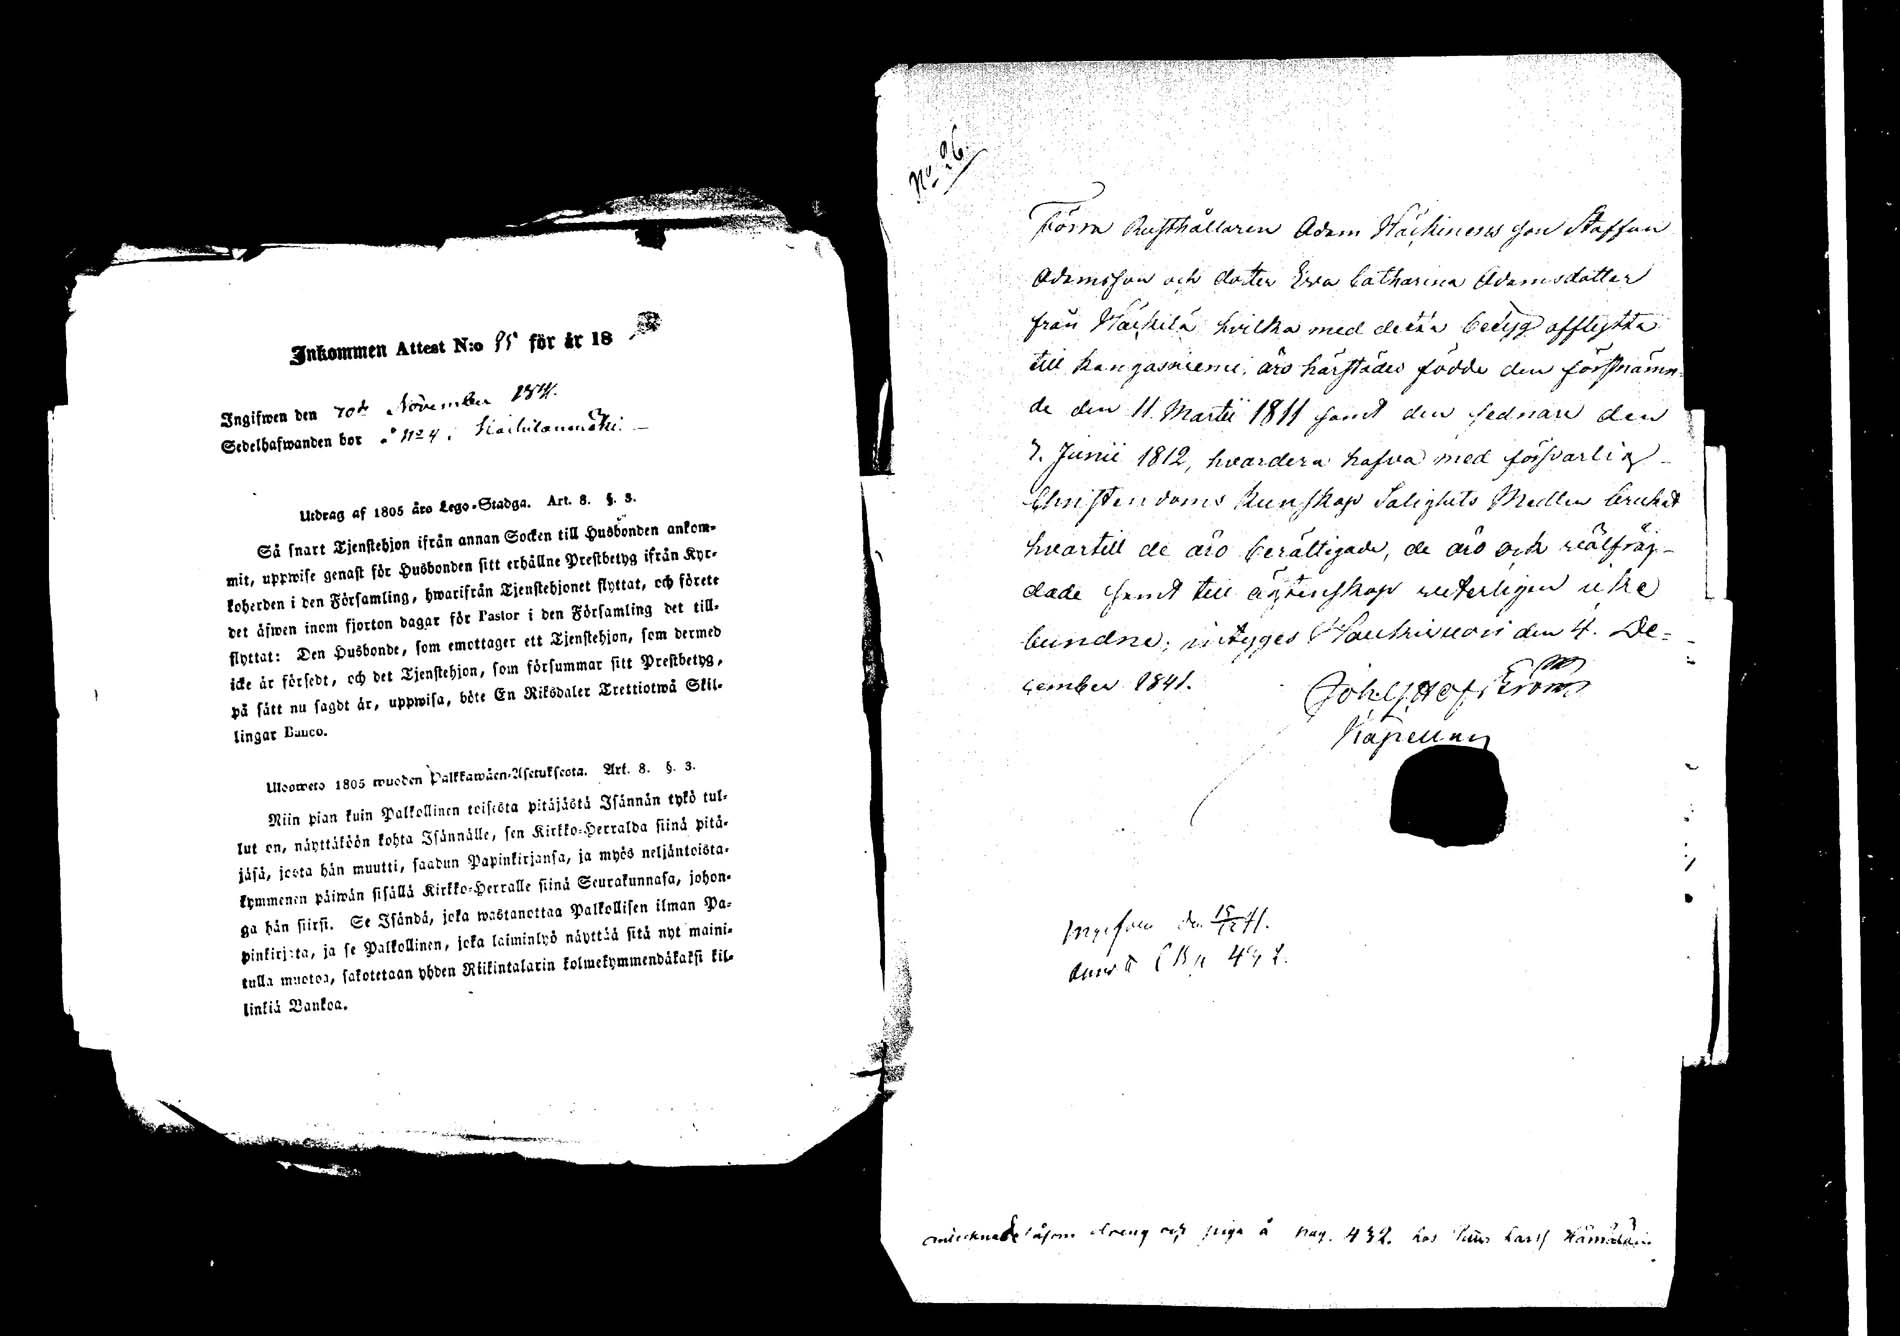 Inkommen Attest N:o 95 för år 18
Ingifwen den 20de November 1841.
Sedelhafwanden bor å No 4
Utdrag af 1805 års Lego-Stadga. Art. 8. §. 3.
Så snart Tjenstehjon ifrån annan Socken till Husbonden ankom-
mit, uppwise genast för Husbonden sitt erhållne Prestbetyg ifrån Kyr-
koherden i den Församling, hwarifrån Tjenstehjonet flyttat, och förete
det äfwen inom fjorton dagar för Pastor i den Församling det till-
flyttat: Den Husbonde, som emottager ett Tjenstehjon, som dermed
icke är försedt, och det Tjenstehjon, som försummar sitt Prestbetyg,
på sätt nu sagdt är, uppwisa, böte En Riksdaler Trettiotwå Skil-
lingar Banco.
Uloosweto 1805 wuoden Palkkawäen-Asetuksesta. Art. 8. §. 3.
Niin pian kuin Palkollinen toisesta pitäjästä Isännän tykö tul-
lut on, näyttäköön kohta Isännälle, sen Kirkko-Herralda siinä pitä-
jäsä, josta hän muutti, saadun Papinkirjansa, ja myös neljäntoista-
kymmenen päiwän sisällä Kirkko-Herralle siinä Seurakunnasa, johon-
ga hän siirsi. Se Isändä, joka wastanottaa Palkollisen ilman Pa-
pinkirjata, ja se Palkollinen, joka laiminlyö näyttää sitä nyt maini-
tulla muotoa, sakotetaan yhden Riikintalarin kolmekymmendäkaksi kil-
linkiä Bankoa.
No 96.
Förra Rusthållaren Adam Häckinens son Staffan
Adamsson och dotter Eva Catharina Adamsdotter
från Häckilä hvilka med detta betyg afflytta
till Kangasniemi, äro härstädes födde den förstnämn-
de den 11. Martii 1811 samt den sednare den
7. Junii 1812, hvardera hafva med försvarlig
Christendoms Kunskap Salighets Medlen brukat
hvartill de äro berättigade, de äro och välfräg-
dade samt till ägtenskap veterligen icke
bundne; intygges Hautrivuori den 4. De-
cember 1841.
Kapellan
Ingifven den 15/12 41.
432.
såsom dreng och piga å pag. 432. hos Lars Hämäläin